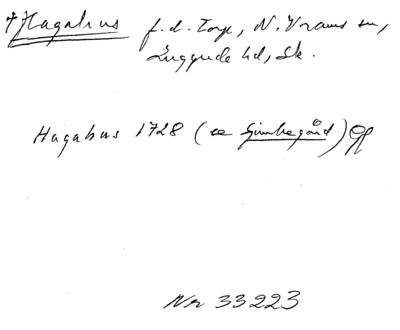 † Hagahus f.d. torp, N. Vrams sn,
Luggude hd, Sk.
Hagahus 1728 (se Gunnbergård)
Nr 33223